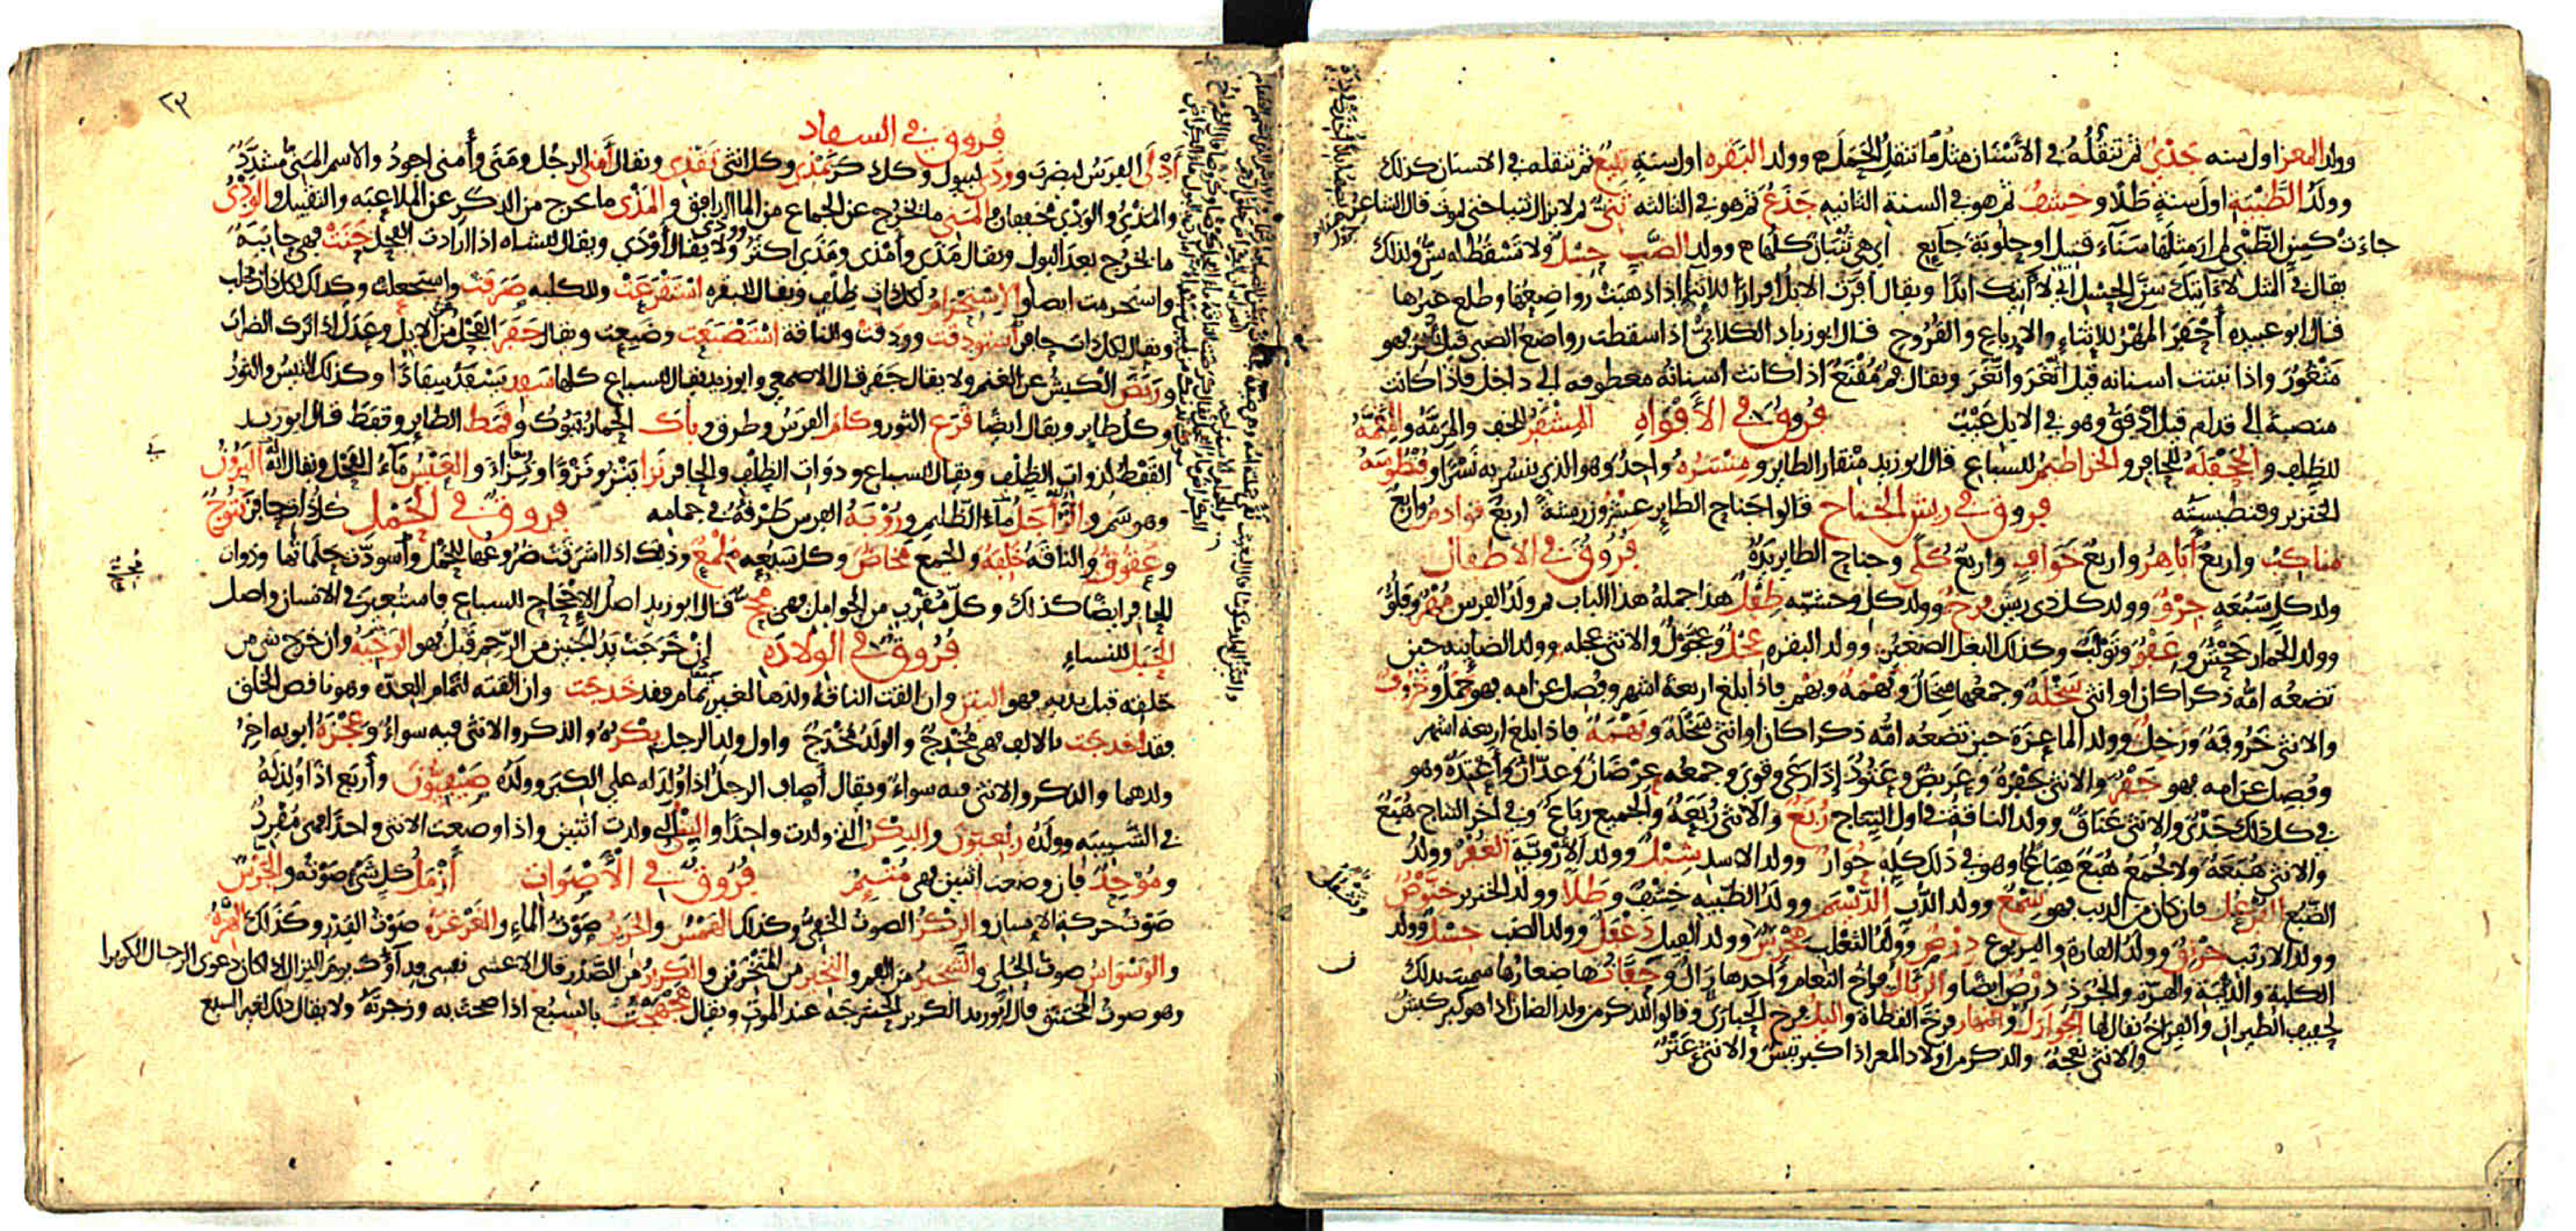 وولد المعز اول سنه جَدْيٌ ثم تنقُلُهُ في الأَسْنَان مثل ما تنقل الحَمَل وولد البَقره اول سنةٍ تبيعٌ ثم تنقله في الاسنان كذلك
وولدُ الظَّبْيَةِ اول سنةٍ طَلًا وخِشْفٌ ثم هو في السنة الثانيه جَذَعٌ ثم هو في الثالثه ثَنِيٌّ ثم لا يزال ثنيا حتى يموت قال الشاعر
جاءت كسِنِّ الظَّبْي لم ار مثلها سَنَاءَ قتيل او حلوبَةَ جايع اي هي ثُنْيان كلها وولد الضَّبِ حِسْلٌ ولا تَسْقُطُ له سِنٌّ ولذلك
يقال في المثل لا آتيك سِنَّ الحِسْل اي لا آتيك ابدًا ويقال أفرَّتِ الابلُ إفرارًا للاثناءِ اذا ذهبَتْ رواضِعُها وطلع غيرها
قال ابو عبيده أَحْفَرَ المُهْرُ للإثناءِ والإرباع والقُرُوح قال ابو زياد الكلابيُّ اذا سقطت رواضع الصبى قيل ثُغِرَ فهو
مَثْغُورٌ واذا نبتت اسنانه قيل اثَّغَرَ واتَّغَرَ ويقال فمٌ مُقْنَعٌ اذا كانت اسنانُه معطوفه الى داخل فاذا كانت
منصبةً الى قدام قيل أَدْفَقُ وهو في الابل عَيْبٌ فُروُقٌ في الأَفْوَاهِ المِشْفَرُ للخف والمِرَمَّةُ والمِقَمَّةُ
للظِلْف والجَحْفَلَهُ للحافر والخراطيمُ للسباع قال ابو زيد مِنْقار الطاير ومِنْسَرُه واحدٌ وهو الذي ينسُر به نَسْرًا وفِنْطِيسَهُ
الخنزير وفنطيسته فروق في ريش الجناح قالوا جَناح الطاير عِشْرُون ريشةً اربعٌ قوادمُ واربعٌ
مناكبُ واربعٌ أباهِرُ واربعٌ خوافٍ واربعٌ كُلًى وجناح الطاير يَدُهُ فُرُوُقٌ في الاطفال
ولد كل سَبُعَةٍ جِرْوٌ وولد كل ذي ريشٍ فرخٌ وولد كل وحشيّه طِفْلٌ هذا جملة هذا الباب ثم ولدُ الفرس مُهْرٌ وفِلْوٌ
وولد الحِمار جَحْشٌ وعِفْوٌ وتَوْلَبٌ وكذلك البغل الصغير وولد البقره عِجْلٌ وعِجَّوْلٌ والانثى عجله وولد الضاينه حين
تضعُه امُّه ذكرا كان او انثى سَخْلَةٌ وجمعُها سِخَالٌ وبَهْمَةٌ وبَهْم فاذا بلغ اربعة اشهر وفُصِل عن امه فهو حَمَلٌ وخَرُوفٌ
والانثى خَرُوفَةٌ ورَخِلٌ وولد الماعِزة حين تضعُه امُّه ذكرا كان او انثى سَخْلَةٌ وبَهْمَةٌ فاذا بلغ اربعة اشهر
وفُصِل عن امه فهو جَفْرٌ والانثى جَفْرَةٌ وعريضٌ وعَتُودٌ إذا رعى وقوى وجمعه عِرْضَانٌ وعِدّانٌ وأَعْتِدَةٌ وهو
في كل ذلك جَدْىٌ والانثى عَنَاقٌ وولد الناقة في اول النِتاج رُبَعٌ والانثى رُبَعَةٌ والجميع رِبَاعٌ وفي آخر النتاج هُبَعٌ
والانثى هُبَعَةٌ ولا يُجْمَعُ هُبَعٌ هِبَاعًا وهو في ذلك كلِّه حُوارٌ وولد الاسدِ شِبْلٌ وولد الأُرْوِيَّةِ الغُفْرُ وولدُ
الضَّبُعِ الفُرْعُل فان كان من الذيب فهو سِمْعٌ وولد الدُّب الدَّيْسَم وولد الظبيه خِشْفٌ وطَلًا وولد الخنزير خِنَّوْصٌ
وولد الارنب خِرْنِقٌ وولد الفاره واليربوع دِرْصٌ وولد الثعلب هِجْرِسٌ وولد الفيل دَغْفَلٌ وولد الضب حِسْلٌ وولد
الكلبة والذيبة والهرّة والجُرَذ دِرْصٌ ايضا والرِّئال فِراخ النعام واحدها رَأْلٌ وحَفَّانُها صِغارُها سميت بذلك
لحفيف الطيران والفِراخُ يقال لها الجَوازِل والنهار فرخُ القطاة والليل فرخ الحُبارَى وقالوا الذكر من ولد الضان اذا هو كبر كبشٌ
والانثى نعجة والذكر من اولاد المعز اذا كبر تَيْسٌ والانثى عَنْزٌ
٢٣
فُروق في السفاد
أَدْلَى الفرَسُ ليضرِبَ وودى ليبول وكل ذكَرٍ يَمْذِى وكل انثى تَقْذِى ويقال أَمنى الرجل ومَنَى وأَمنى اجودُ والاسم المَنِيُّ مُشدَّدٌ
والمَذْىُ والوَدْىُ مخففان والمَنِيُّ ما يخرج عن الجماع من الماء الدافق والمَذْى ما يخرج من الذكر عن الملاعبه والتقبيل والوَدْىُ
ما يخرج بعد البول ويقال مَذَى وأَمْذى ومَذَى اكثر ولا يقال أَوْدَى ويقال للشاه اذا ارادت الفحل حَنَتْ فهي حانيةٌ
واستحرمت ايضا والاِسْتِحْرَامُ لكل ذات ظِلْفٍ ويقال للبقره اسْتَقْرَعَتْ وللكلبه صَرَفت واستجعلت وكذلك لكل ذات مخلب
ويقال لكل ذات حافر اسْتَوْدَقَت وودَقَتْ وللناقة اسْتَضْبَعَت وضَبِعت ويقال جَفَرَ الفحل من الابل وعَدَلَ اذا ترك الضراب
ورَبَضَ الكبش عن الغنم ولا يقال جَفَر قال الاصمعي وابو زيد يقال للسباع كلها سَفِد يَسْفَدُ سِفَادًا وكذلك التيسُ والثورُ
وكل طاير ويقال ايضًا قَرَع الثور وكامَ الفرَسُ وطرق وباكَ الحِمارُ يَبُوكُ وقَمَط الطاير وقفَطَ قال ابو زيد
القَفْطُ لذوات الظلف ويقال للسباع وذوات الظِلْف والحافر نَزا يَنْزو نَزْوًا ونُزَاءً والعَيْسُ مَاءُ الفَحْل ويقال انه اليَرُونُ
وهو سَمٌ والزَّأْجَلُ مَاءُ الظَّلِيم ورُوْبَةُ الفرس طَرْقُهُ في جمامه فروقٌ في الحمل كل ذات حافر نَتُوجٌ
وعَقُوقٌ والناقة خَلِفَةٌ والجميع مَخاضٌ وكل سَبُعةٍ مُلْمِعٌ وذلك اذا اشرقت ضُروعُها للحمل واسودَّت حَلَماتُها وذوات
الحافر ايضًا كذلك وكلّ مُقْرِبٍ من الحوامل فهي مُجِحٌّ قال ابو زيد اصل الإجحاح للسباع فاستُعير في الانسان واصل
الحَبَل للنساءِ فُرُوُقٌ في الوِلَادَه إن خَرَجَتْ يدُ الجنين من الرَّحِم قيل فهو الوَجِيهُ وان خَرج شي من
خلفه قبل يديه فهو اليَتْن وان القت الناقة ولدها لغير تَمام فقد خَدَجَت وان القته لتمام العدّه وهو ناقص الخلق
فقد أخدجَت بالالف فهي مُخْدِجٌ والولَدُ مُخْدَجٌ واول ولد الرجل بِكْرُه والذكر والانثى فيه سواءٌ وعِجْزَةُ ابويه اخرُ
ولدهما والذكر والانثى فيه سواءٌ ويقال أَصافَ الرجلُ اذا وُلِدَ له على الكِبَر وولَدُه صَيْفِيُّونَ وأَربَعَ اذا وُلِدَ لَهُ
في الشَّبِيبَه وولَدُهُ رِبْعِيُّونَ والبِكْرُ التى ولدت واحدًا والثِّنْيُ التى ولدت اثنين واذا وضعت الانثى واحدًا فهي مُفْرِدٌ
ومُوْحِدٌ فان وضعت اثنين فهي مُتْئِمٌ فُرُوقٌ في الأَصْوَات أَزْمَلُ كل شي صَوْتُه والجَرْسُ
صَوْت حركة الإنسان والرِّكْزُ الصوتُ الخفيّ وكذلك الهَمْسُ والخَرِيرُ صَوْتُ الماءِ والغَرْغَرَةُ صَوْتُ القِدْر وكَذَلكَ الهَزَّةُ
والوَسْواسُ صوتُ الحَلْي والشَّخيرُ من الفم والنَّخيرُ من المَنْخِرَيْنِ والكَرِيرُ من الصَّدْر قال الاعشى نفسى فداؤك يوم النزال اذا كان دعوى الرجال الكريرا
وهو صوتُ المختنق قال ابو زيد الكرير الحشرجة عند الموت ويقال هَجْهَجْتُ بالسَّبُع اذا صحت به وزجرته ولا يقال ذلك لغير السبع